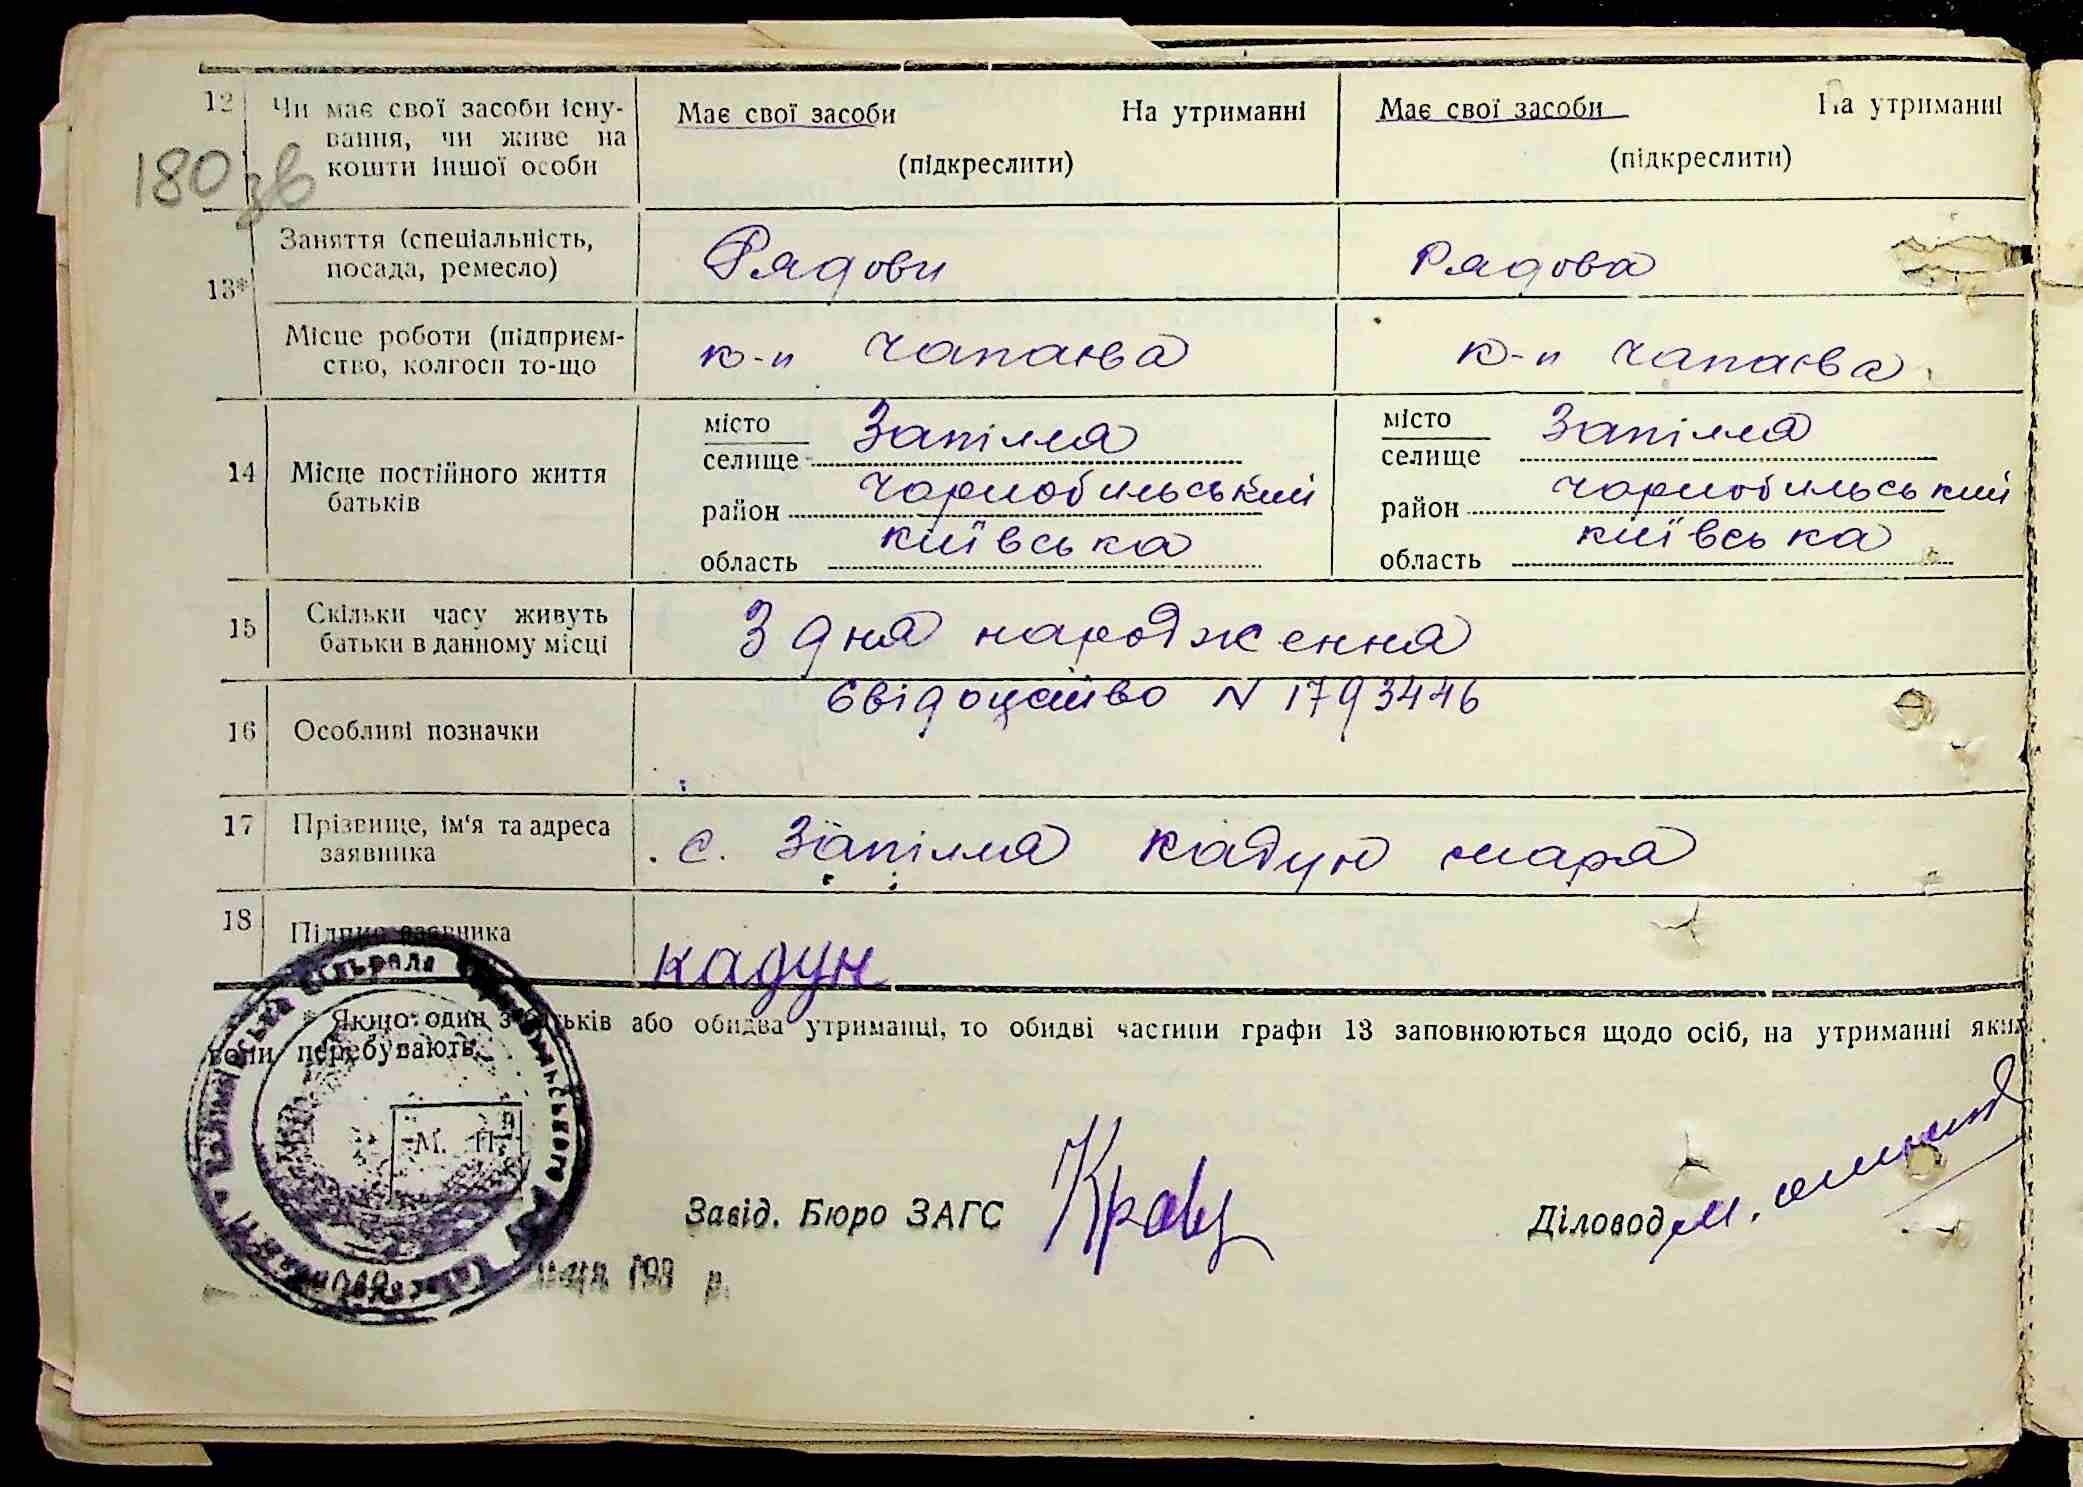 12 Чи має свої засоби існу-
вання, чи живе на
кошти іншої особи
Має свої засоби На утриманні
(підкреслити)
Має свої засоби На утриманні
(підкреслити)
180 зв
13* Заняття (спеціальність,
посада, ремесло)
Рядови
Рядова
Місце роботи (підприєм-
ство, колгосп то-що
к-п Чапаєва
к-п Чапаєва
14 Місце постійного життя
батьків
місто
селище Запілля
район Чорнобильський
область Київська
місто
селище Запілля
район Чорнобильський
область Київська
15 Скільки часу живуть
батьки в данному місці
З дня народження
16 Особливі позначки
Свідоцтво N 1793446
17 Прізвище, ім'я та адреса
заявника
с. Запілля Кадун Маря
18 Підпис заявника
кадун
* Якщо один з батьків або обидва утриманці, то обидві частини графи 13 заповнюються щодо осіб, на утриманні яких
вони перебувають.
М. П.
Завід. Бюро ЗАГС
Діловод
193 р.